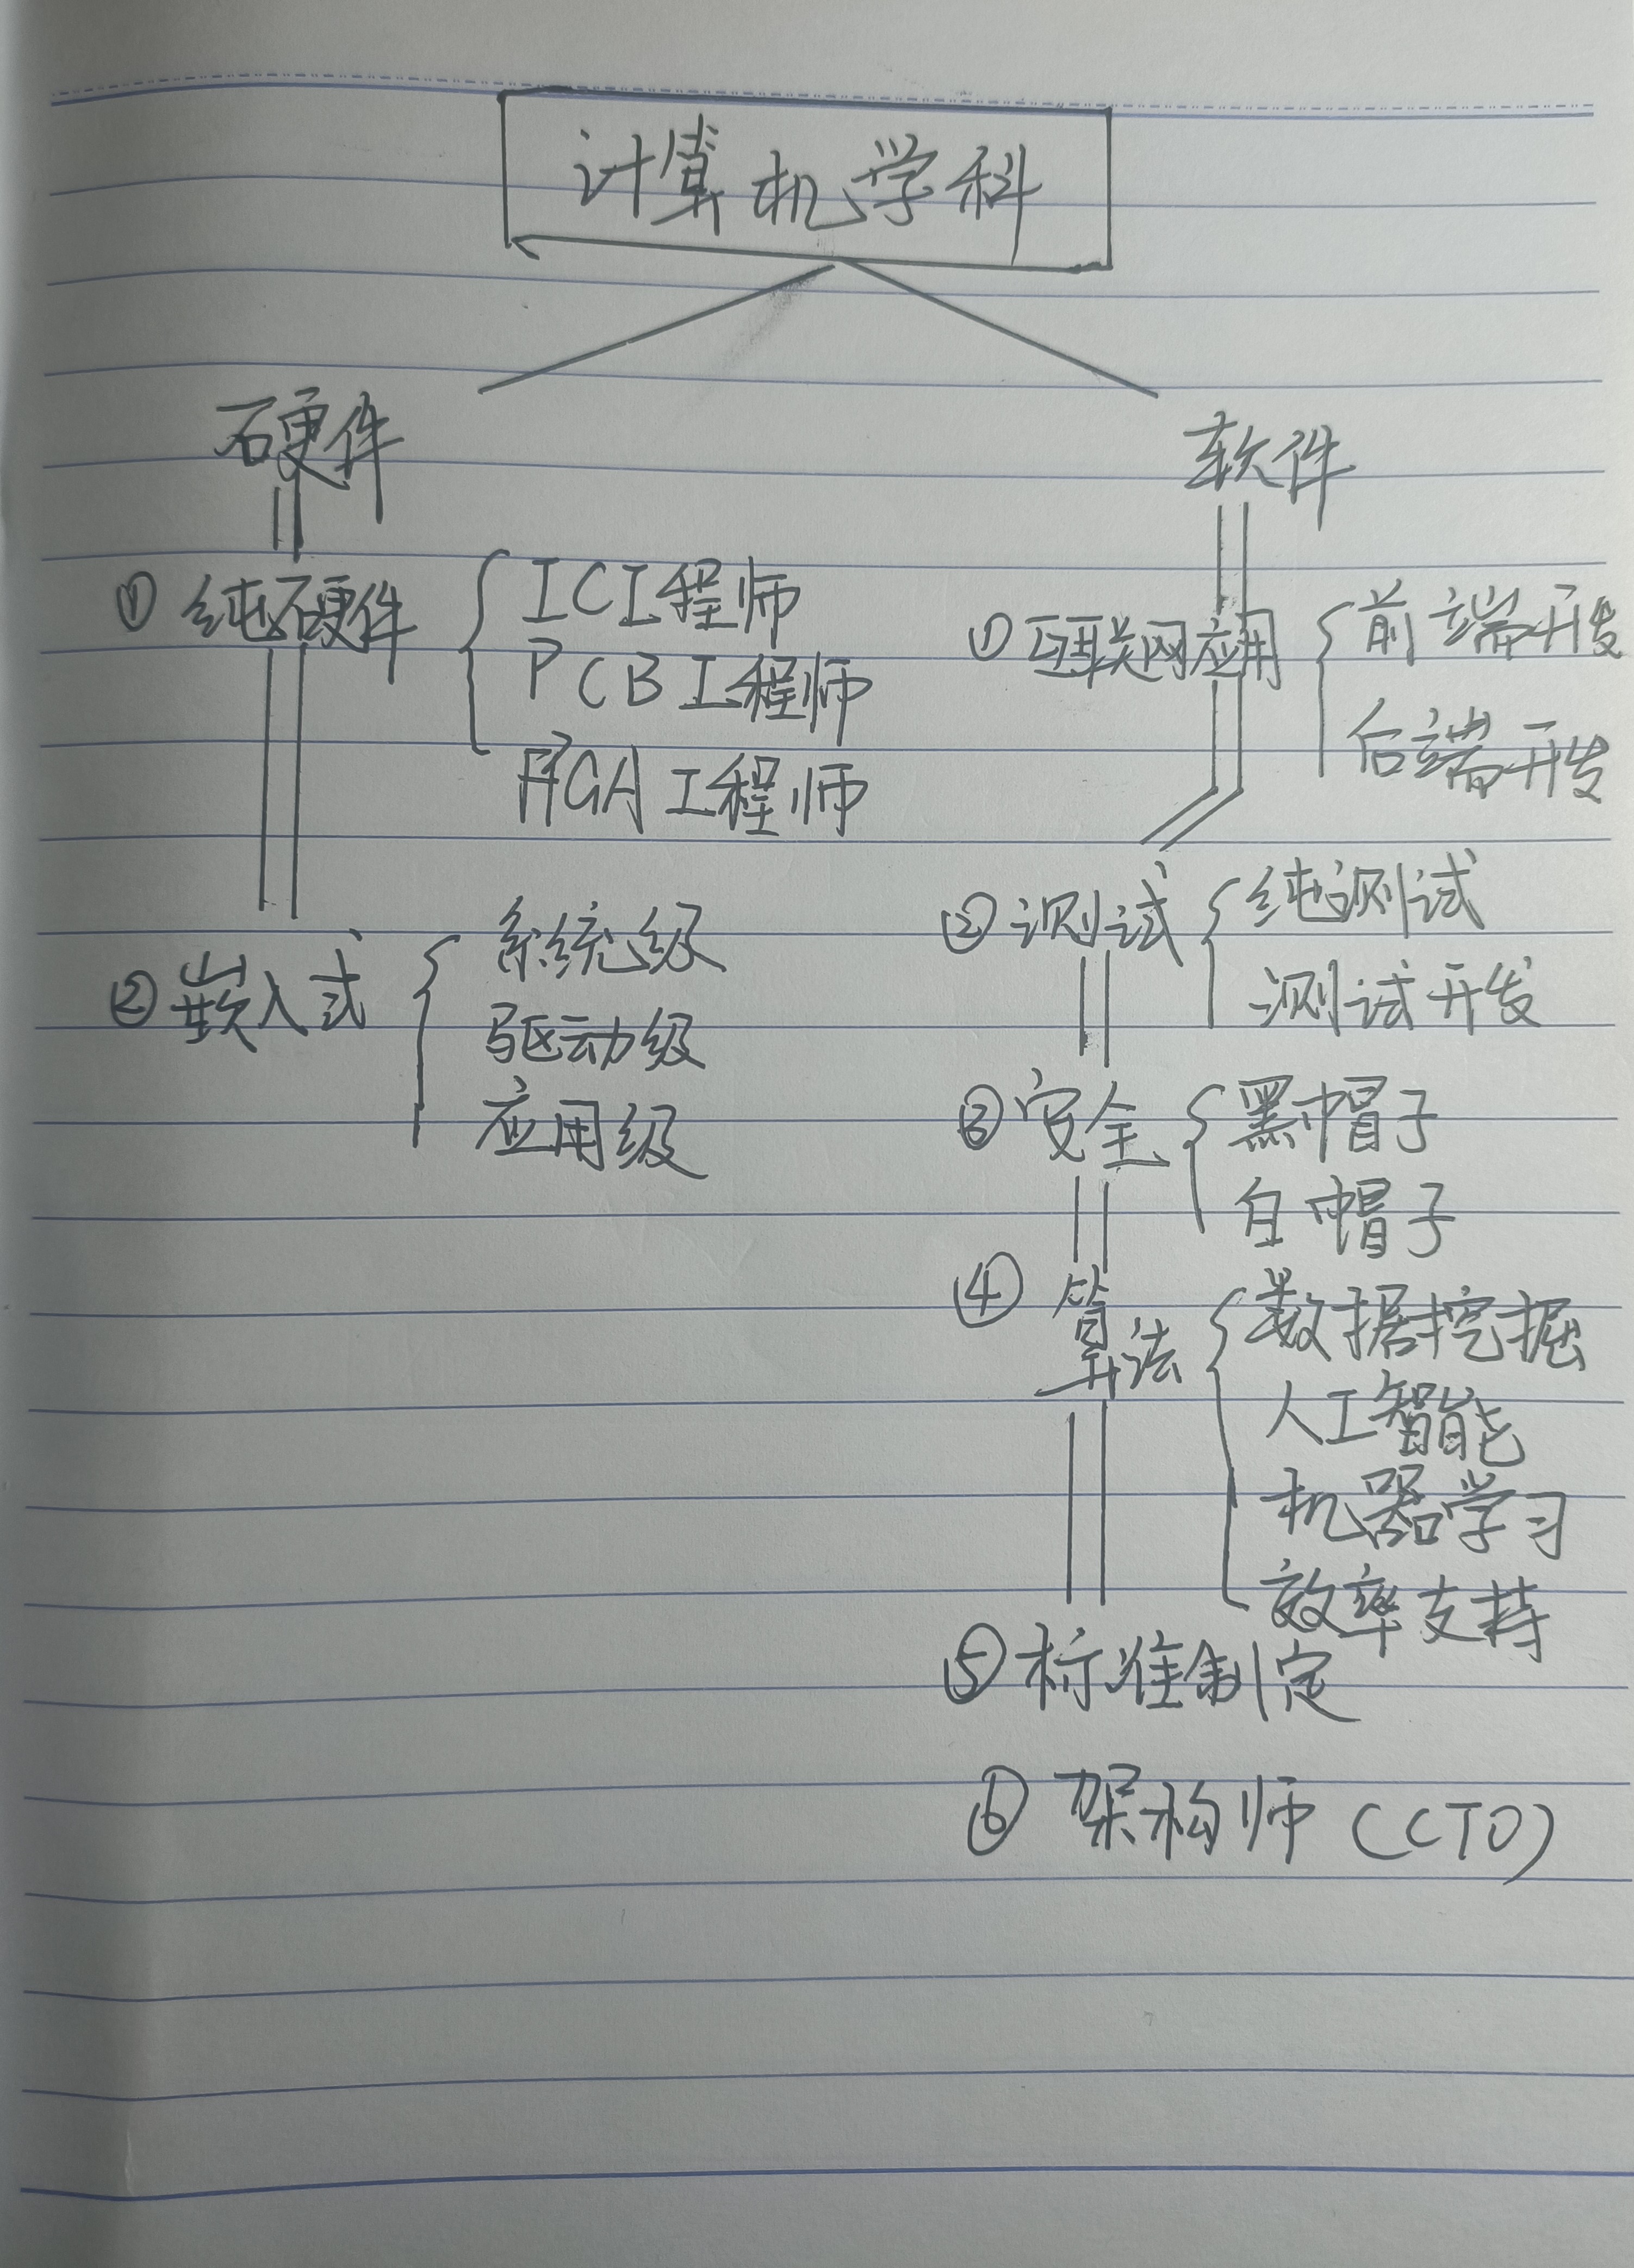 计算机学科
硬件
① 纯硬件
IC工程师
PCB工程师
FPGA工程师
② 嵌入式
系统级
驱动级
应用级
软件
① 互联网应用
前端开发
后端开发
② 测试
纯测试
测试开发
③ 安全
黑帽子
白帽子
④ 算法
数据挖掘
人工智能
机器学习
效率支持
⑤ 标准制定
⑥ 架构师(CTO)